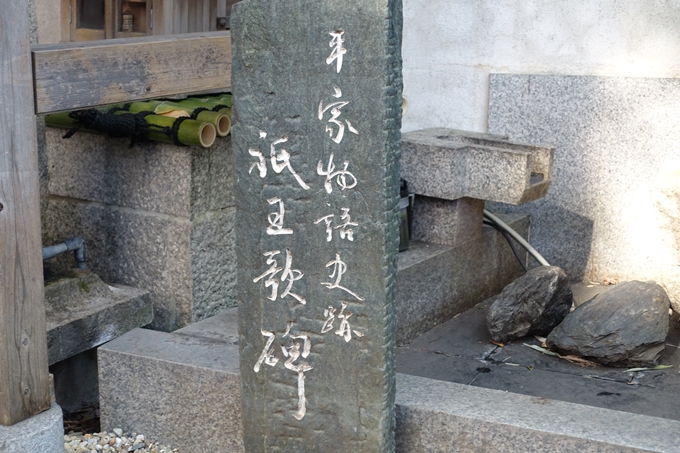 平家物語史跡
祇王歌碑